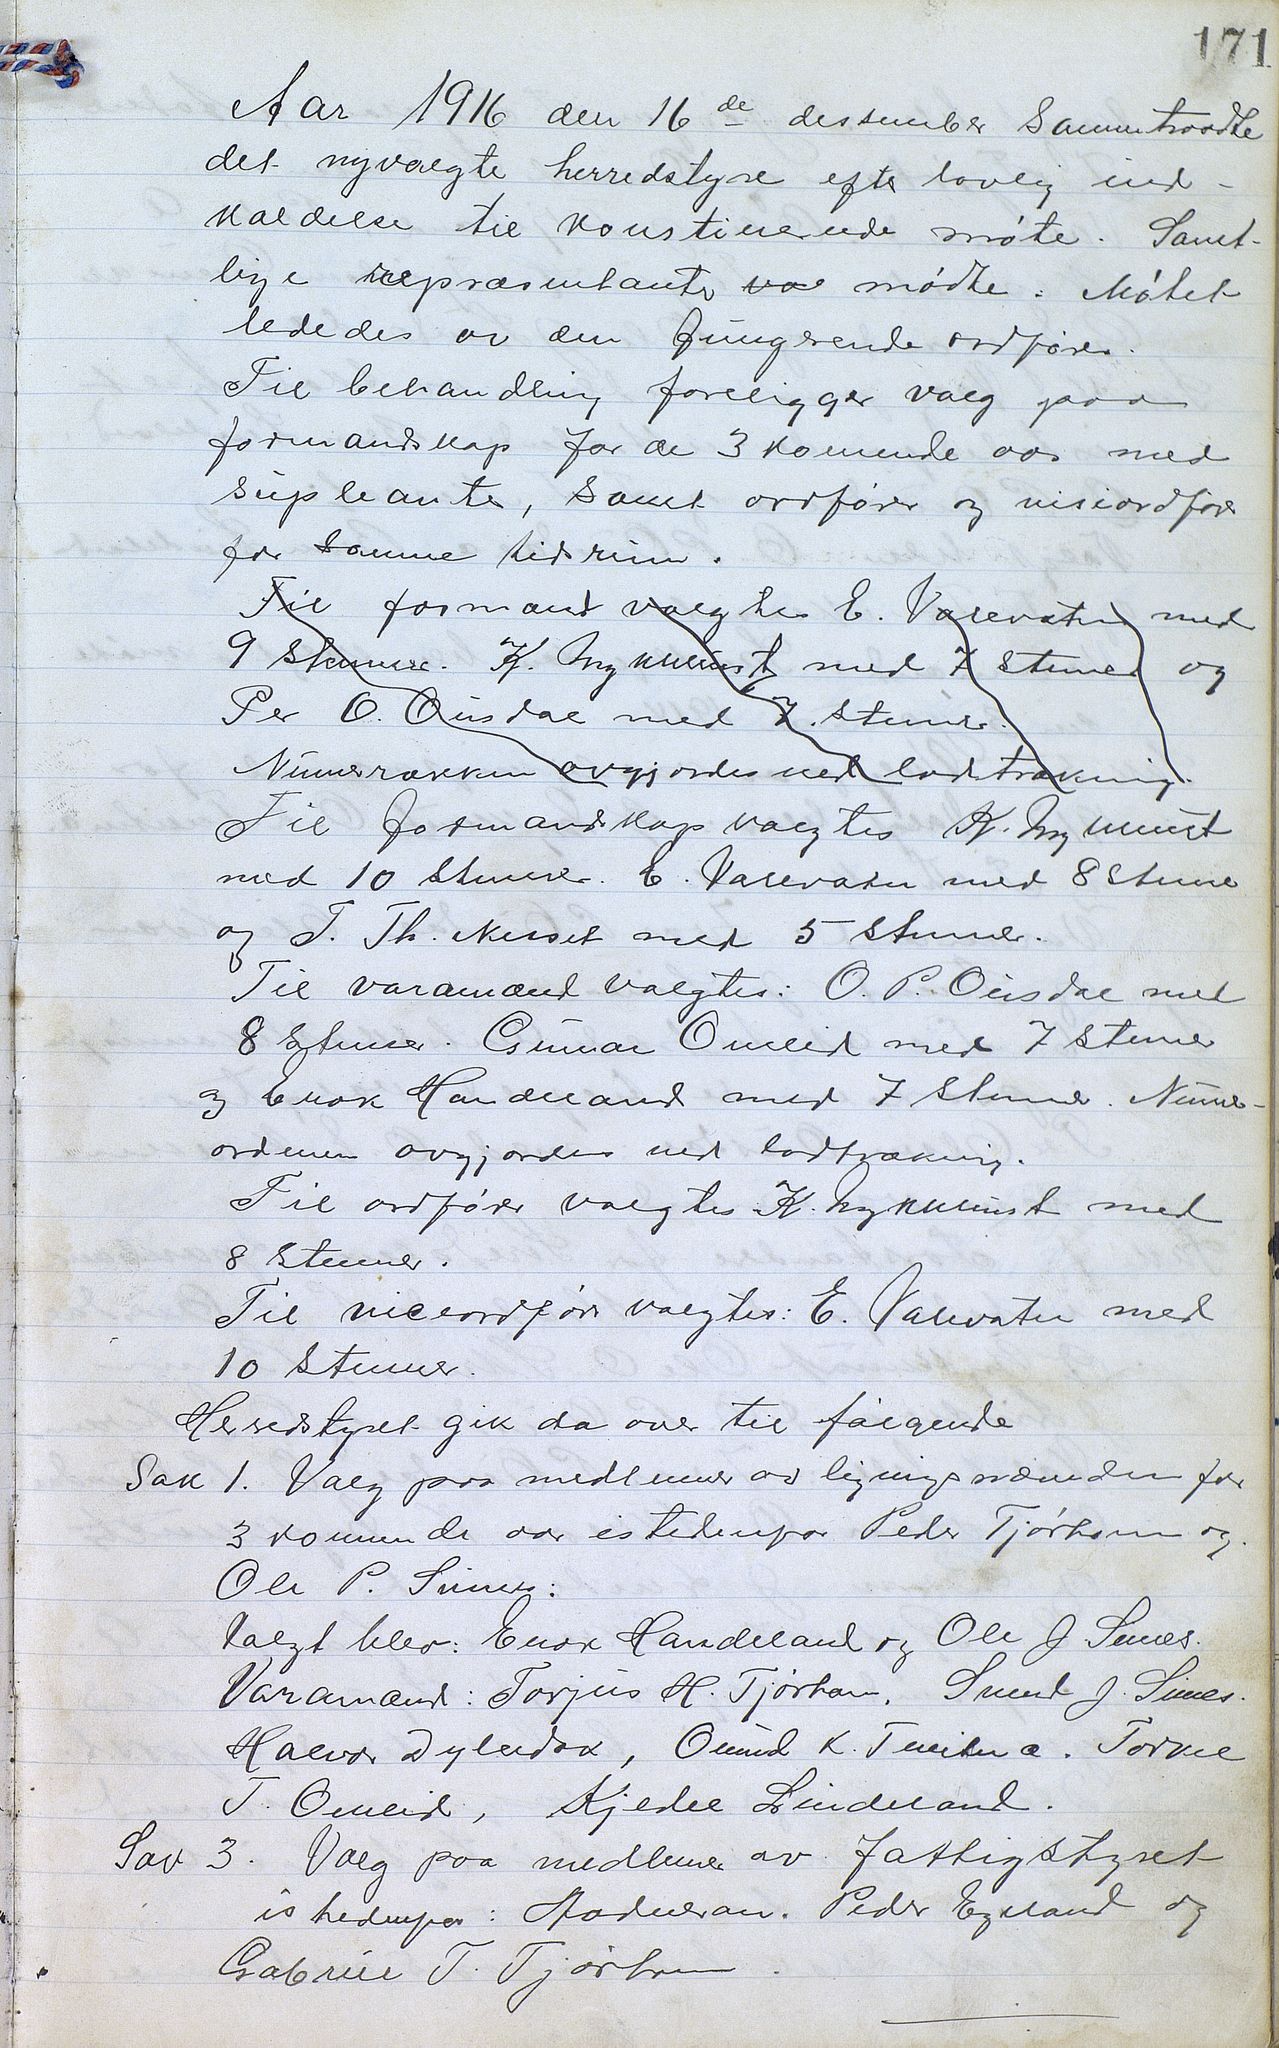 171
Aar 1916 den 16de dessember Sammentraadte
det nyvalgte herredstyre efter lovlig ind-
kaldelse til konstituerende møte. Samt-
lige repræsentanter var mødte. Møtet
lededes av den fungerende ordfører.
Til behandling foreligger valg paa
formandskap for de 3 komende aar med
supleanter, samt ordfører og viseordfører
for samme tidsrum.
Til formand valgtes E. Vasevatn med
9 stemmer. K. Nykmunst med 7 stemmer og
Per O. Ousdal med 7 stemmer.
Numerrækken avgjordes ved lodtrækning.
Til formandskap valgtes K. Nykmunst
med 10 stemmer. E. Vasevatn med 8 stemmer
og T. Th. Nesset med 5 stemmer.
Til varamænd valgtes: O. P. Ousdal med
8 stemmer. Gunar Omlid med 7 stemmer
og Enok Handeland med 7 stemmer. Numer-
ordenen avgjordes ved lodtrækning.
Til ordfører valgtes K. Nykmunst med
8 stemmer.
Til viceordfører valgtes: E. Vasevatn med
10 stemmer.
Herredstyret gik da over til følgende
Sak 1. Valg paa medlemmer av ligningsnævnden for
3 kommende aar istedenfor Peder Tjørhom og
Ole P. Sines:
Valgt blev: Enok Handeland og Ole J. Sines.
Varamænd: Torjus H. Tjørhom, Svend J. Sines.
Halvor Dyblidax, Omund K. Tveitna. Torkel
T. Omlid, Kjedel Lindeland.
Sak 3. Valg paa medlemmer av fattigstyret
istedenfor: Peder Eyeland og
Gabriel T. Tjørhom.